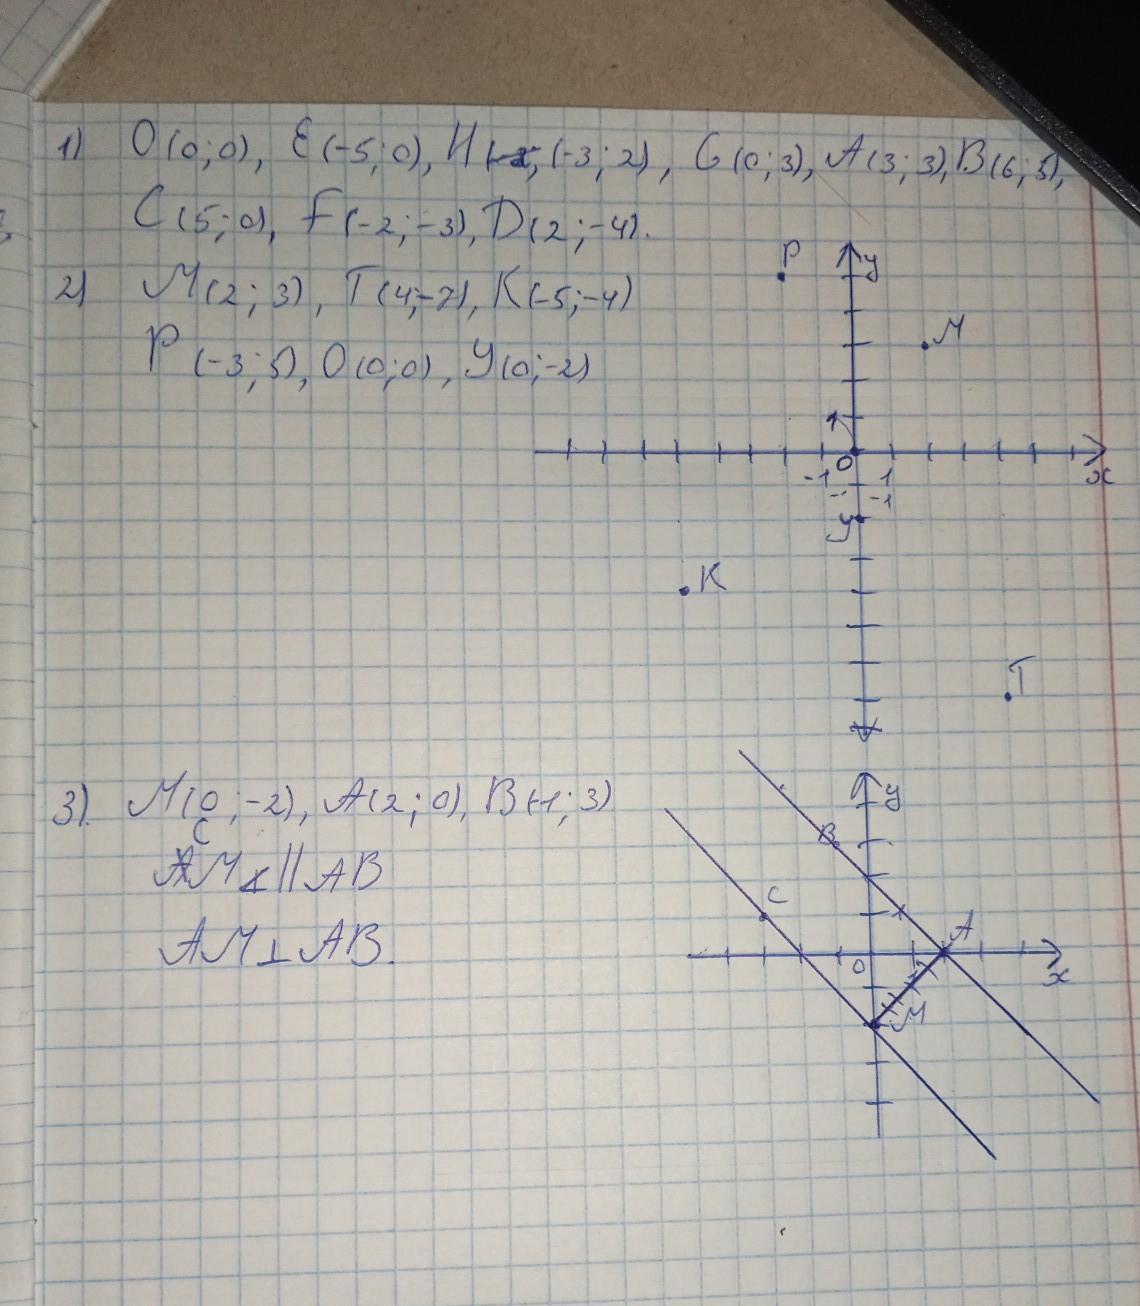 1) O(0;0), E(-5;0), H(-3;2), G(0;3), A(3;3), B(6;5),
C(5;0), F(-2;-3), D(2;-4).
2) M(2;3), T(4;-7), K(-5;-4)
P(-3;5), O(0;0), У(0;-2)
P
y
M
O
x
-1
1
-1
У
K
T
3). M(0;-2), A(2;0), B(-1;3)
CM || AB
AM ⊥ AB.
y
B
C
A
O
x
M